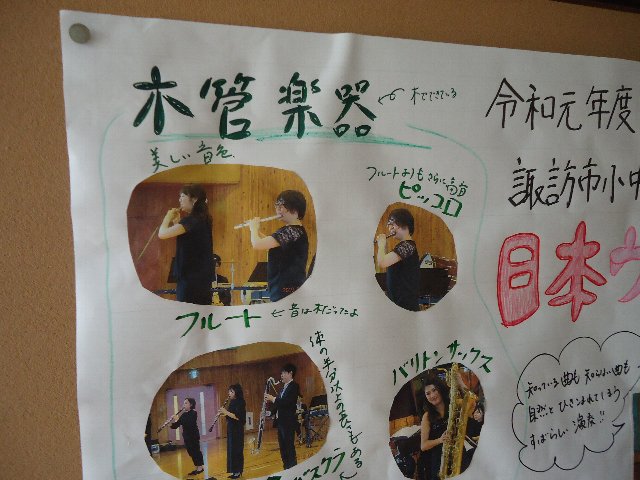 木管楽器
木でできている
美しい音色
フルートよりもさらに高音
ピッコロ
フルート
昔は木だったよ
体の半分以上の
バリトンサックス
令和元年度
諏訪市小中
日本
知っている曲も知らない曲も
自然とひきこまれてしまう
すばらしい演奏!!